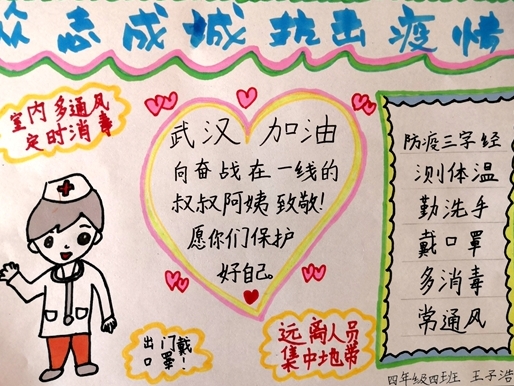 众志成城抗击疫情
室内多通风
定时消毒
武汉 加油
向奋战在一线的
叔叔阿姨致敬!
愿你们保护
好自己。
防疫三字经
测体温
勤洗手
戴口罩
多消毒
常通风
出门戴
口罩!
远离人员
集中地带
四年级四班 王子浩